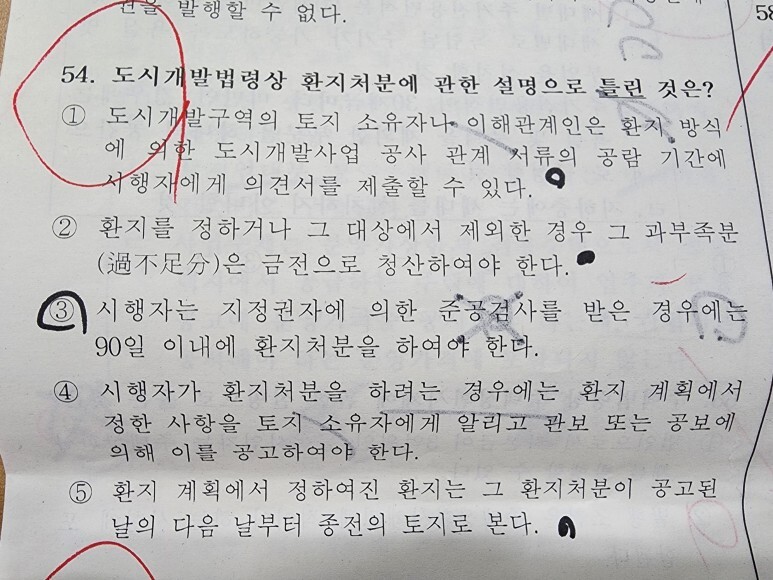 권을 발행할 수 없다.
58
54. 도시개발법령상 환지처분에 관한 설명으로 틀린 것은?
① 도시개발구역의 토지 소유자나 이해관계인은 환지 방식
에 의한 도시개발사업 공사 관계 서류의 공람 기간에
시행자에게 의견서를 제출할 수 있다.
② 환지를 정하거나 그 대상에서 제외한 경우 그 과부족분
(過不足分)은 금전으로 청산하여야 한다.
③ 시행자는 지정권자에 의한 준공검사를 받은 경우에는
90일 이내에 환지처분을 하여야 한다.
④ 시행자가 환지처분을 하려는 경우에는 환지 계획에서
정한 사항을 토지 소유자에게 알리고 관보 또는 공보에
의해 이를 공고하여야 한다.
⑤ 환지 계획에서 정하여진 환지는 그 환지처분이 공고된
날의 다음 날부터 종전의 토지로 본다.